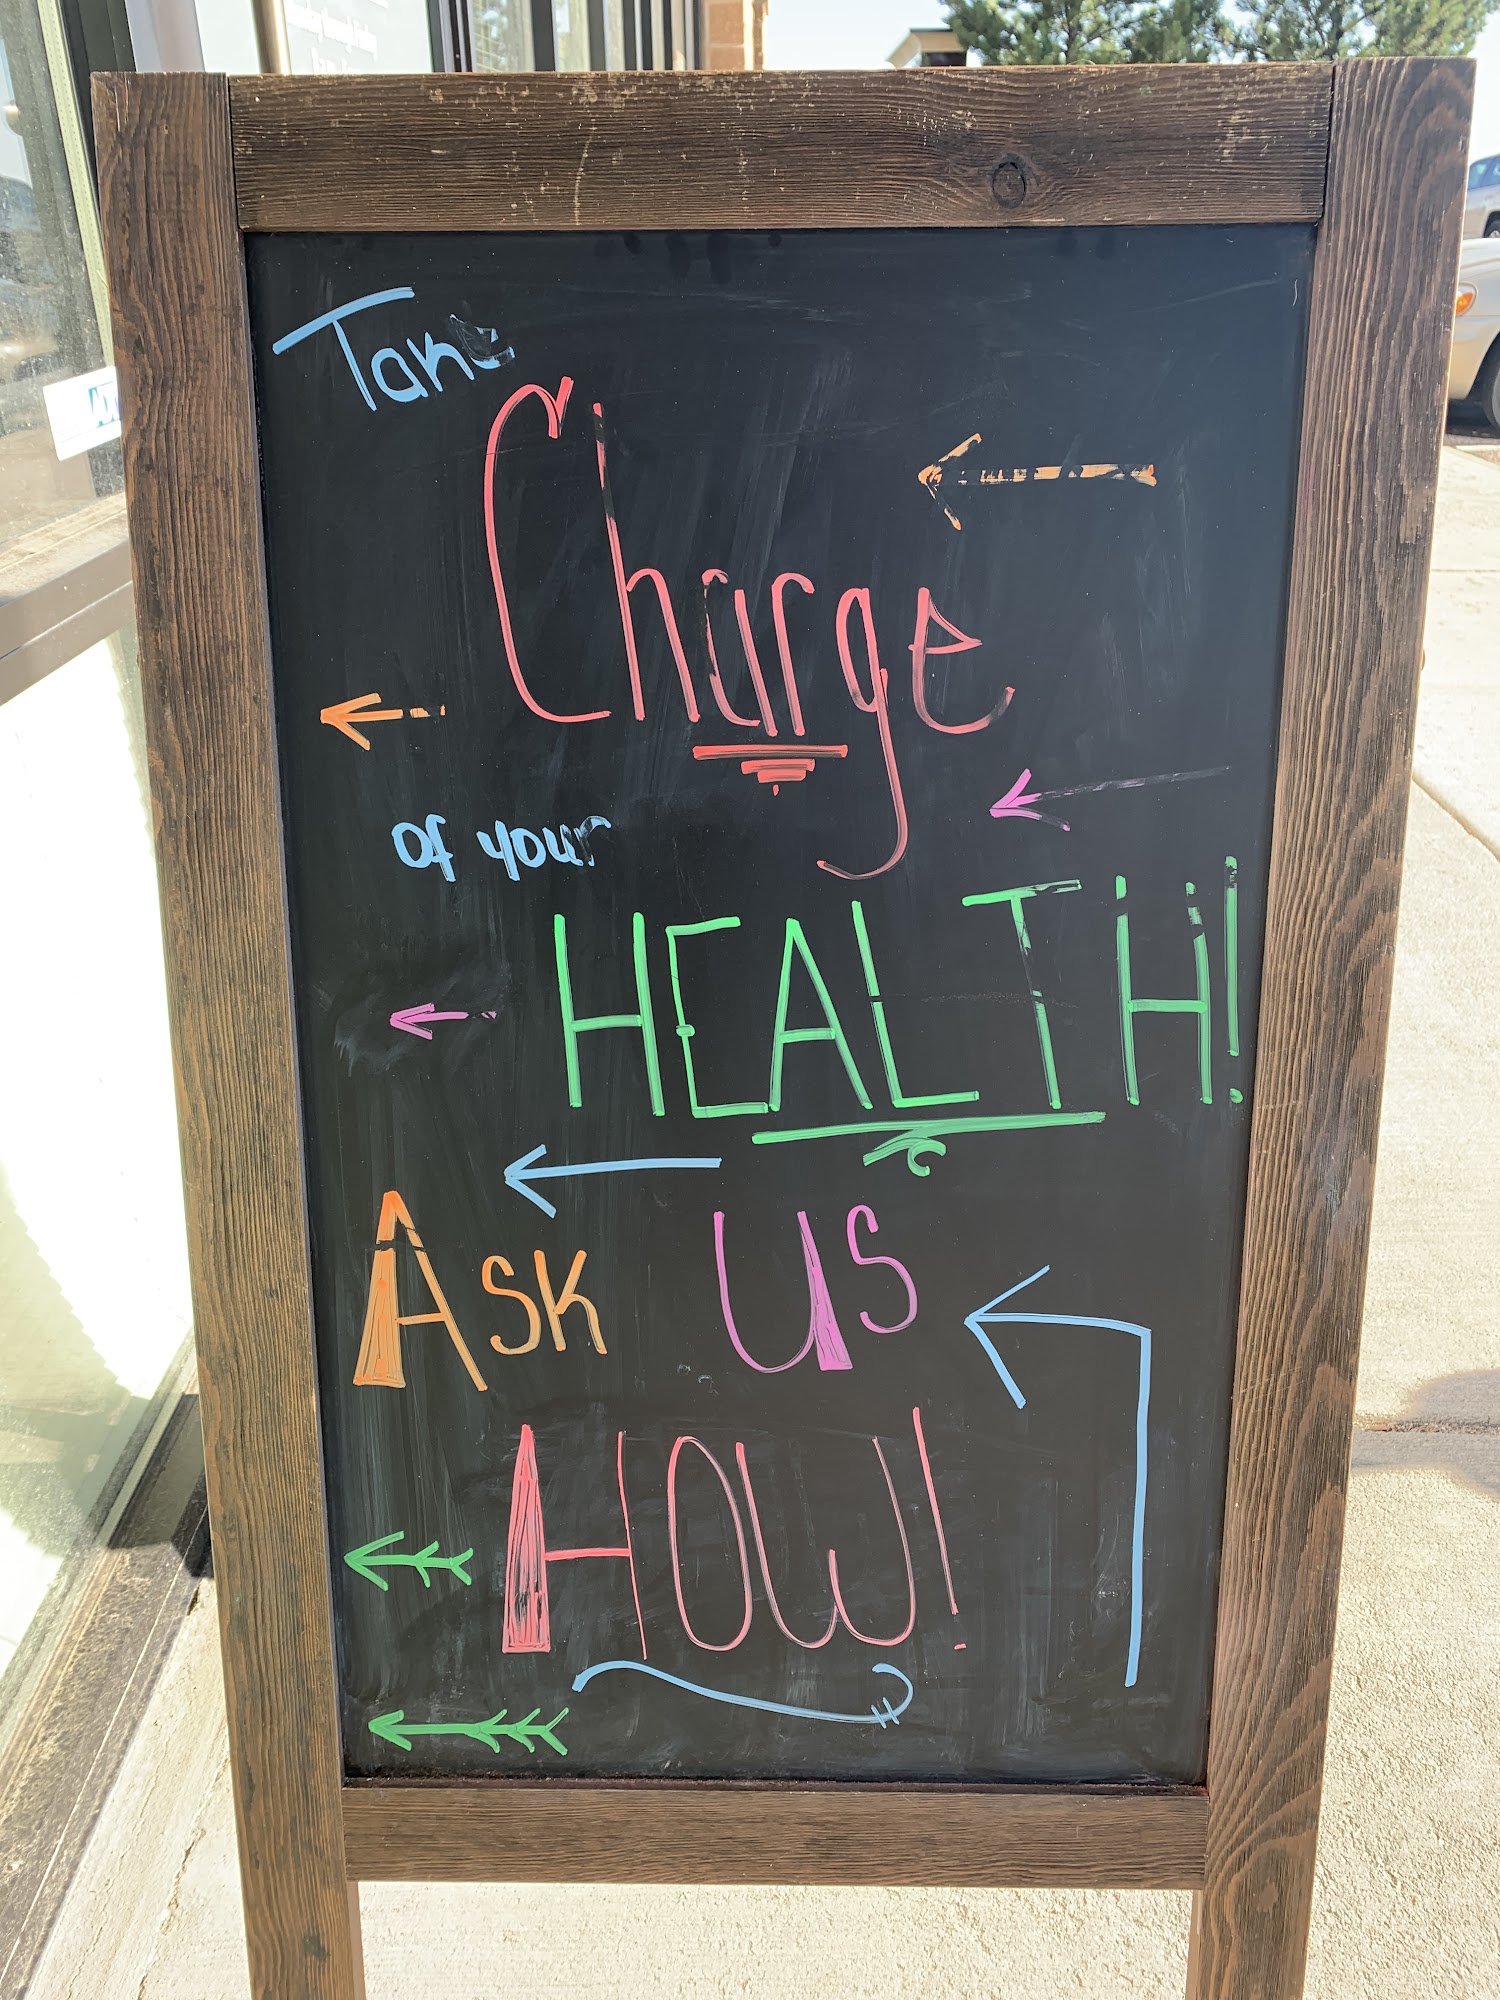 Take
Charge
of your
HEALTH!
ASK US
HOW!